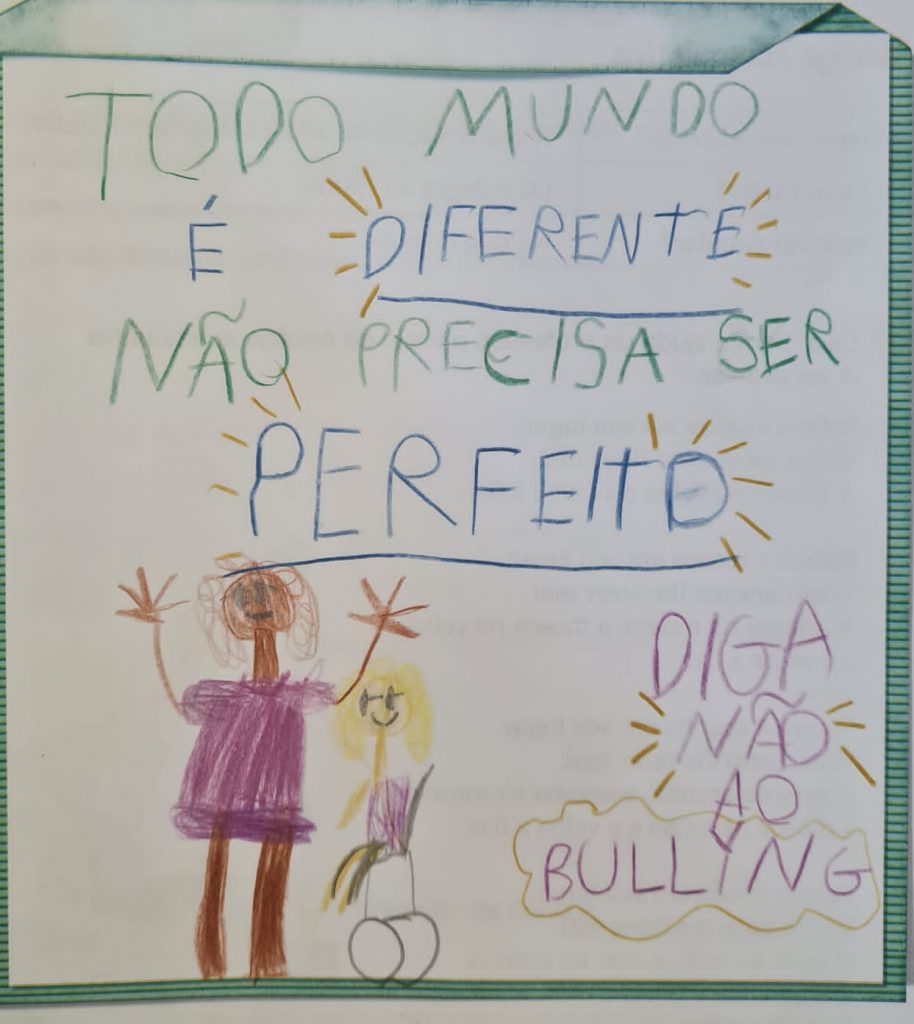 TODO MUNDO
É DIFERENTE
NÃO PRECISA SER
PERFEITO
DIGA
NÃO
AO
BULLYING